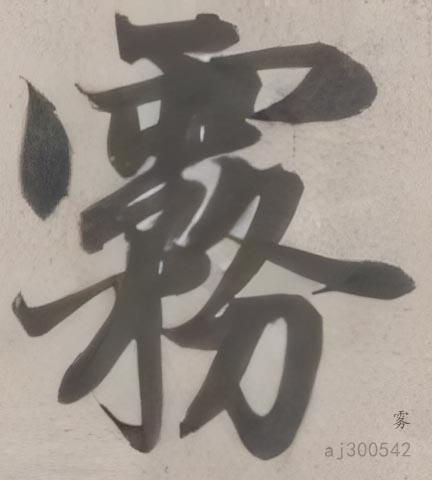 霧
雾
aj300542